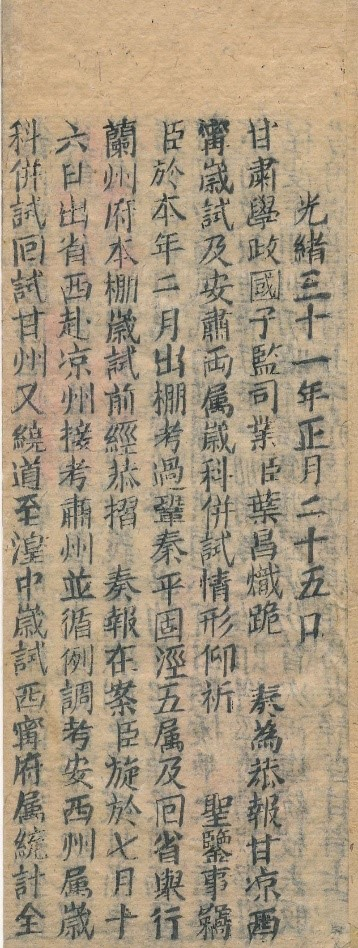 光緒三十一年正月二十五日
甘肅學政國子監司業臣葉昌熾跪 奏為恭報甘凉西
寧歲試及安肅両属歲科併試情形仰祈 聖鑒事竊
臣於本年二月出棚考過鞏秦平固涇五属及回省舉行
蘭州府本棚歲試前經恭摺 奏報在案臣旋於七月十
六日出省西赴凉州接考肅州並循例調考安西州属歲
科併試回試甘州又繞道至湟中歲試西寧府属統計全